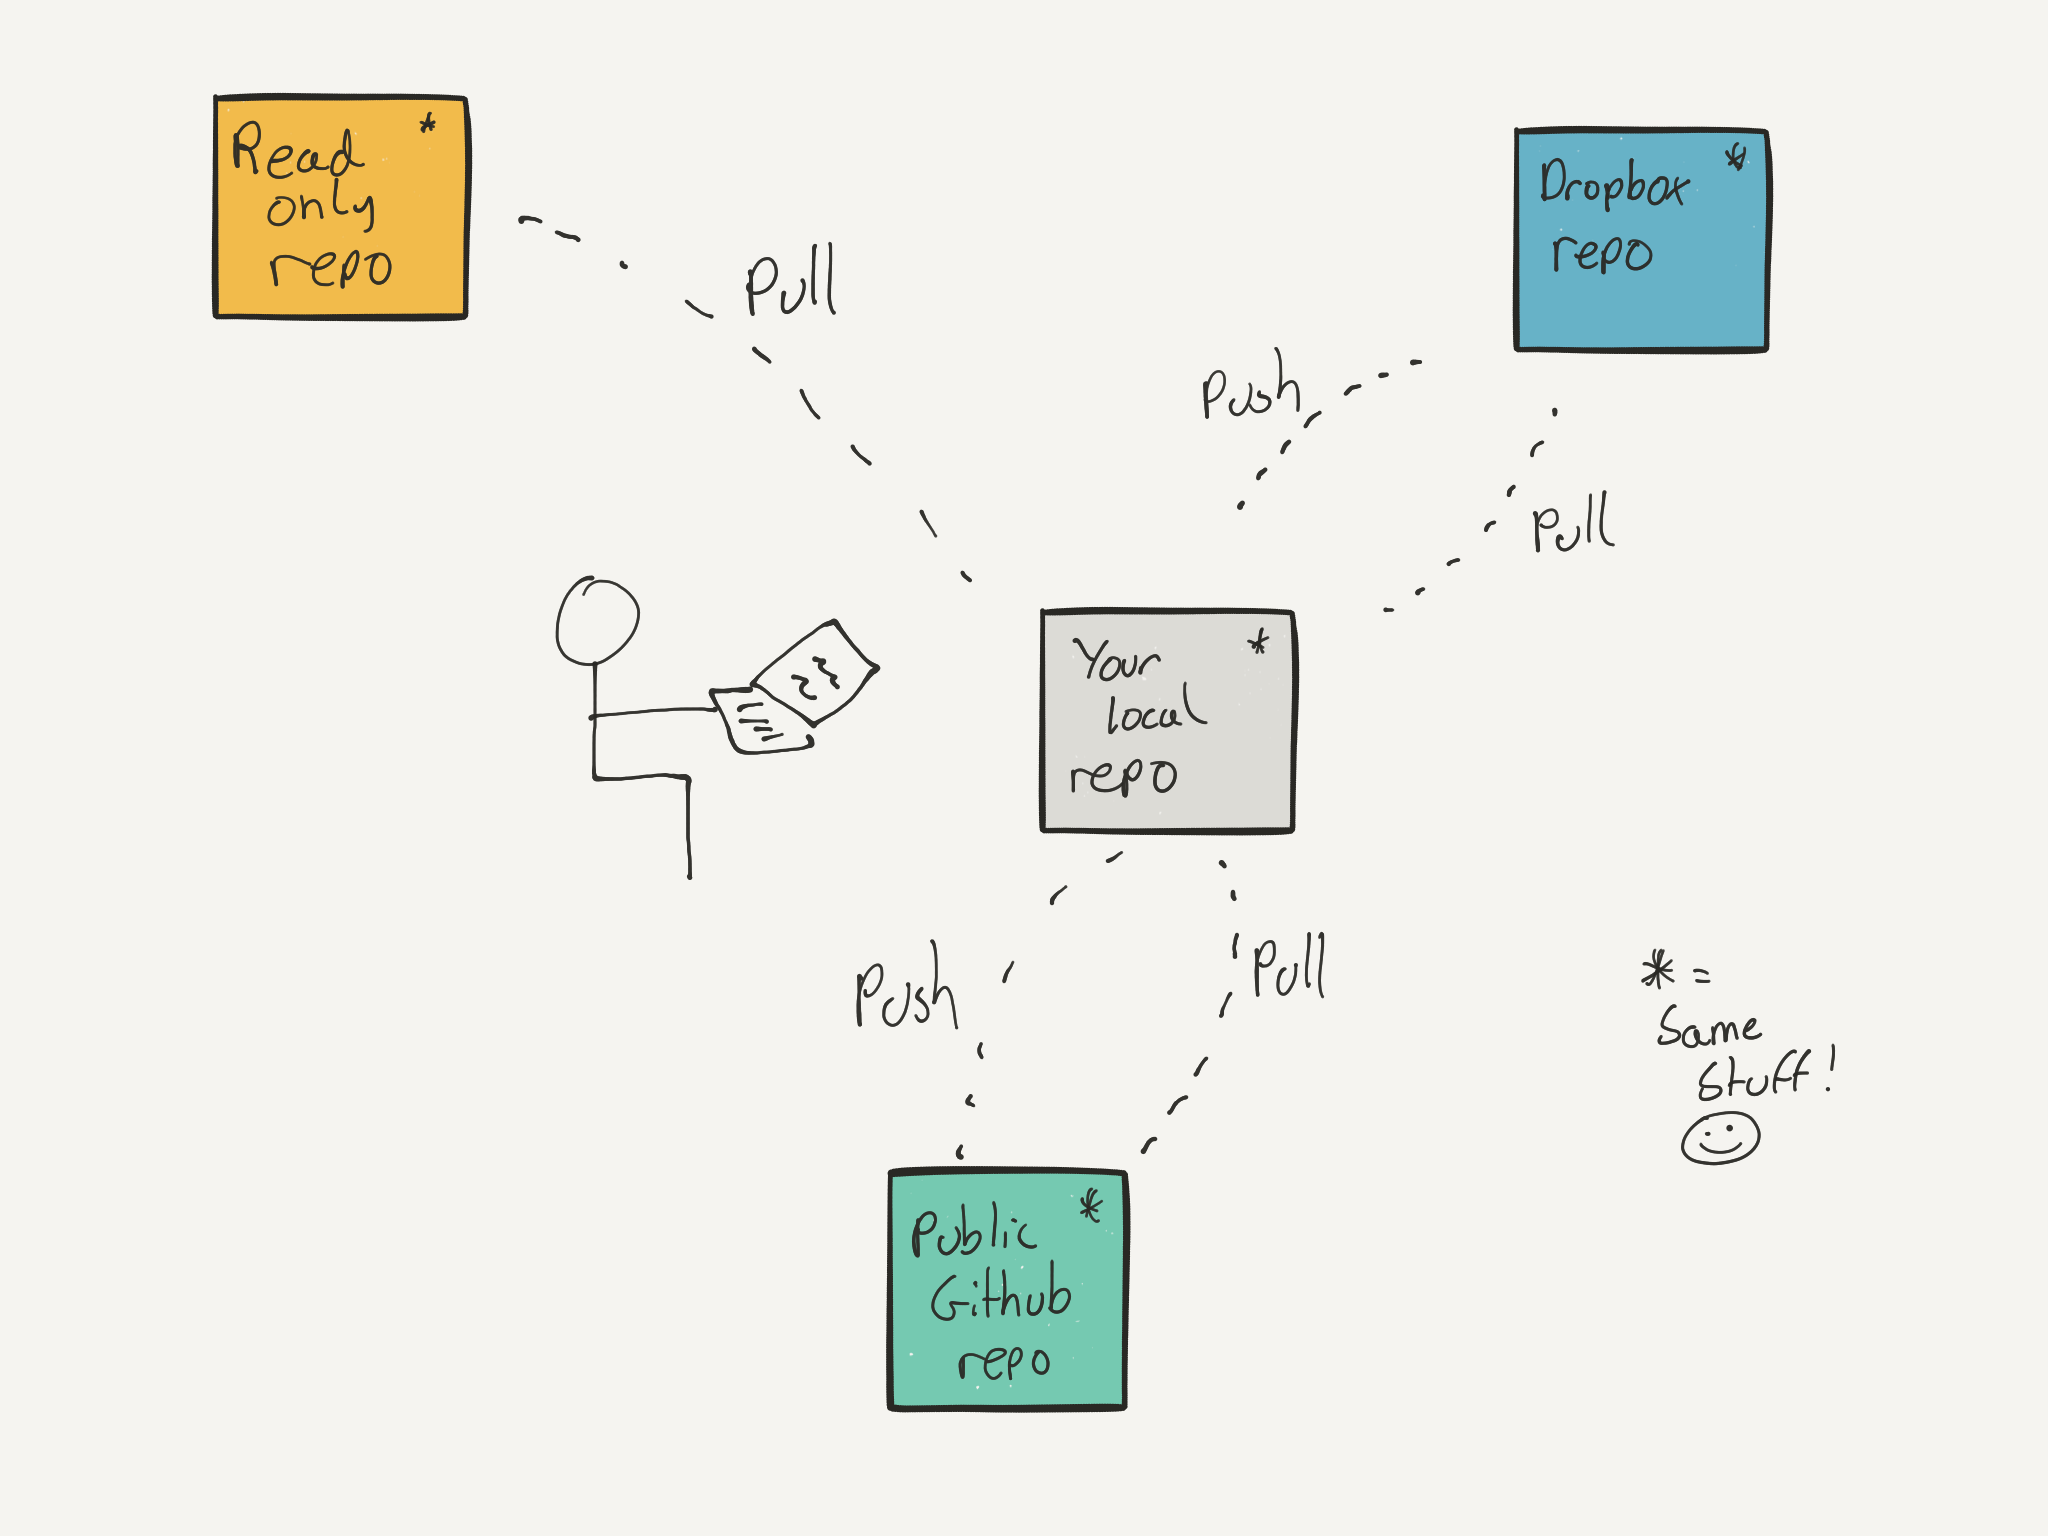 Read *
only
repo
Pull
Dropbox *
repo
Push
Pull
Your *
local
repo
Push
Pull
Public *
Github
repo
* =
Same
stuff!